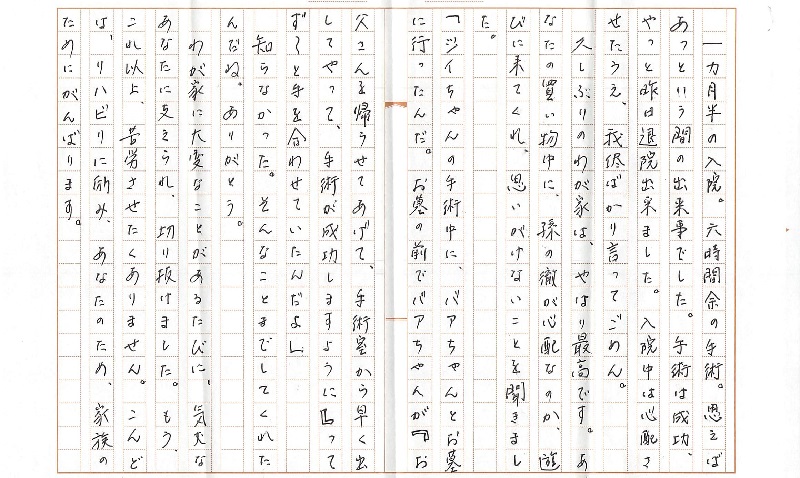 一カ月半の入院。六時間余の手術。思えば
あっという間の出来事でした。手術は成功、
やっと昨日退院出来ました。入院中は心配さ
せたうえ、我儘ばかり言ってごめん。
久しぶりのわが家は、やはり最高です。あ
なたの買い物中に、孫の徹が心配なのか、遊
びに来てくれ、思いがけないことを聞きまし
た。
「ジイちゃんの手術中に、バアちゃんとお墓
に行ったんだ。お墓の前でバアちゃんが『お
父さんを帰らせてあげて、手術室から早く出
してやって、手術が成功しますように』って
ずーっと手を合わせていたんだよ」
知らなかった。そんなことまでしてくれた
んだね。ありがとう。
わが家に大変なことがあるたびに、気丈な
あなたに支えられ、切り抜けました。もう、
これ以上、苦労させたくありません。こんど
は、リハビリに励み、あなたのため、家族の
ためにがんばります。